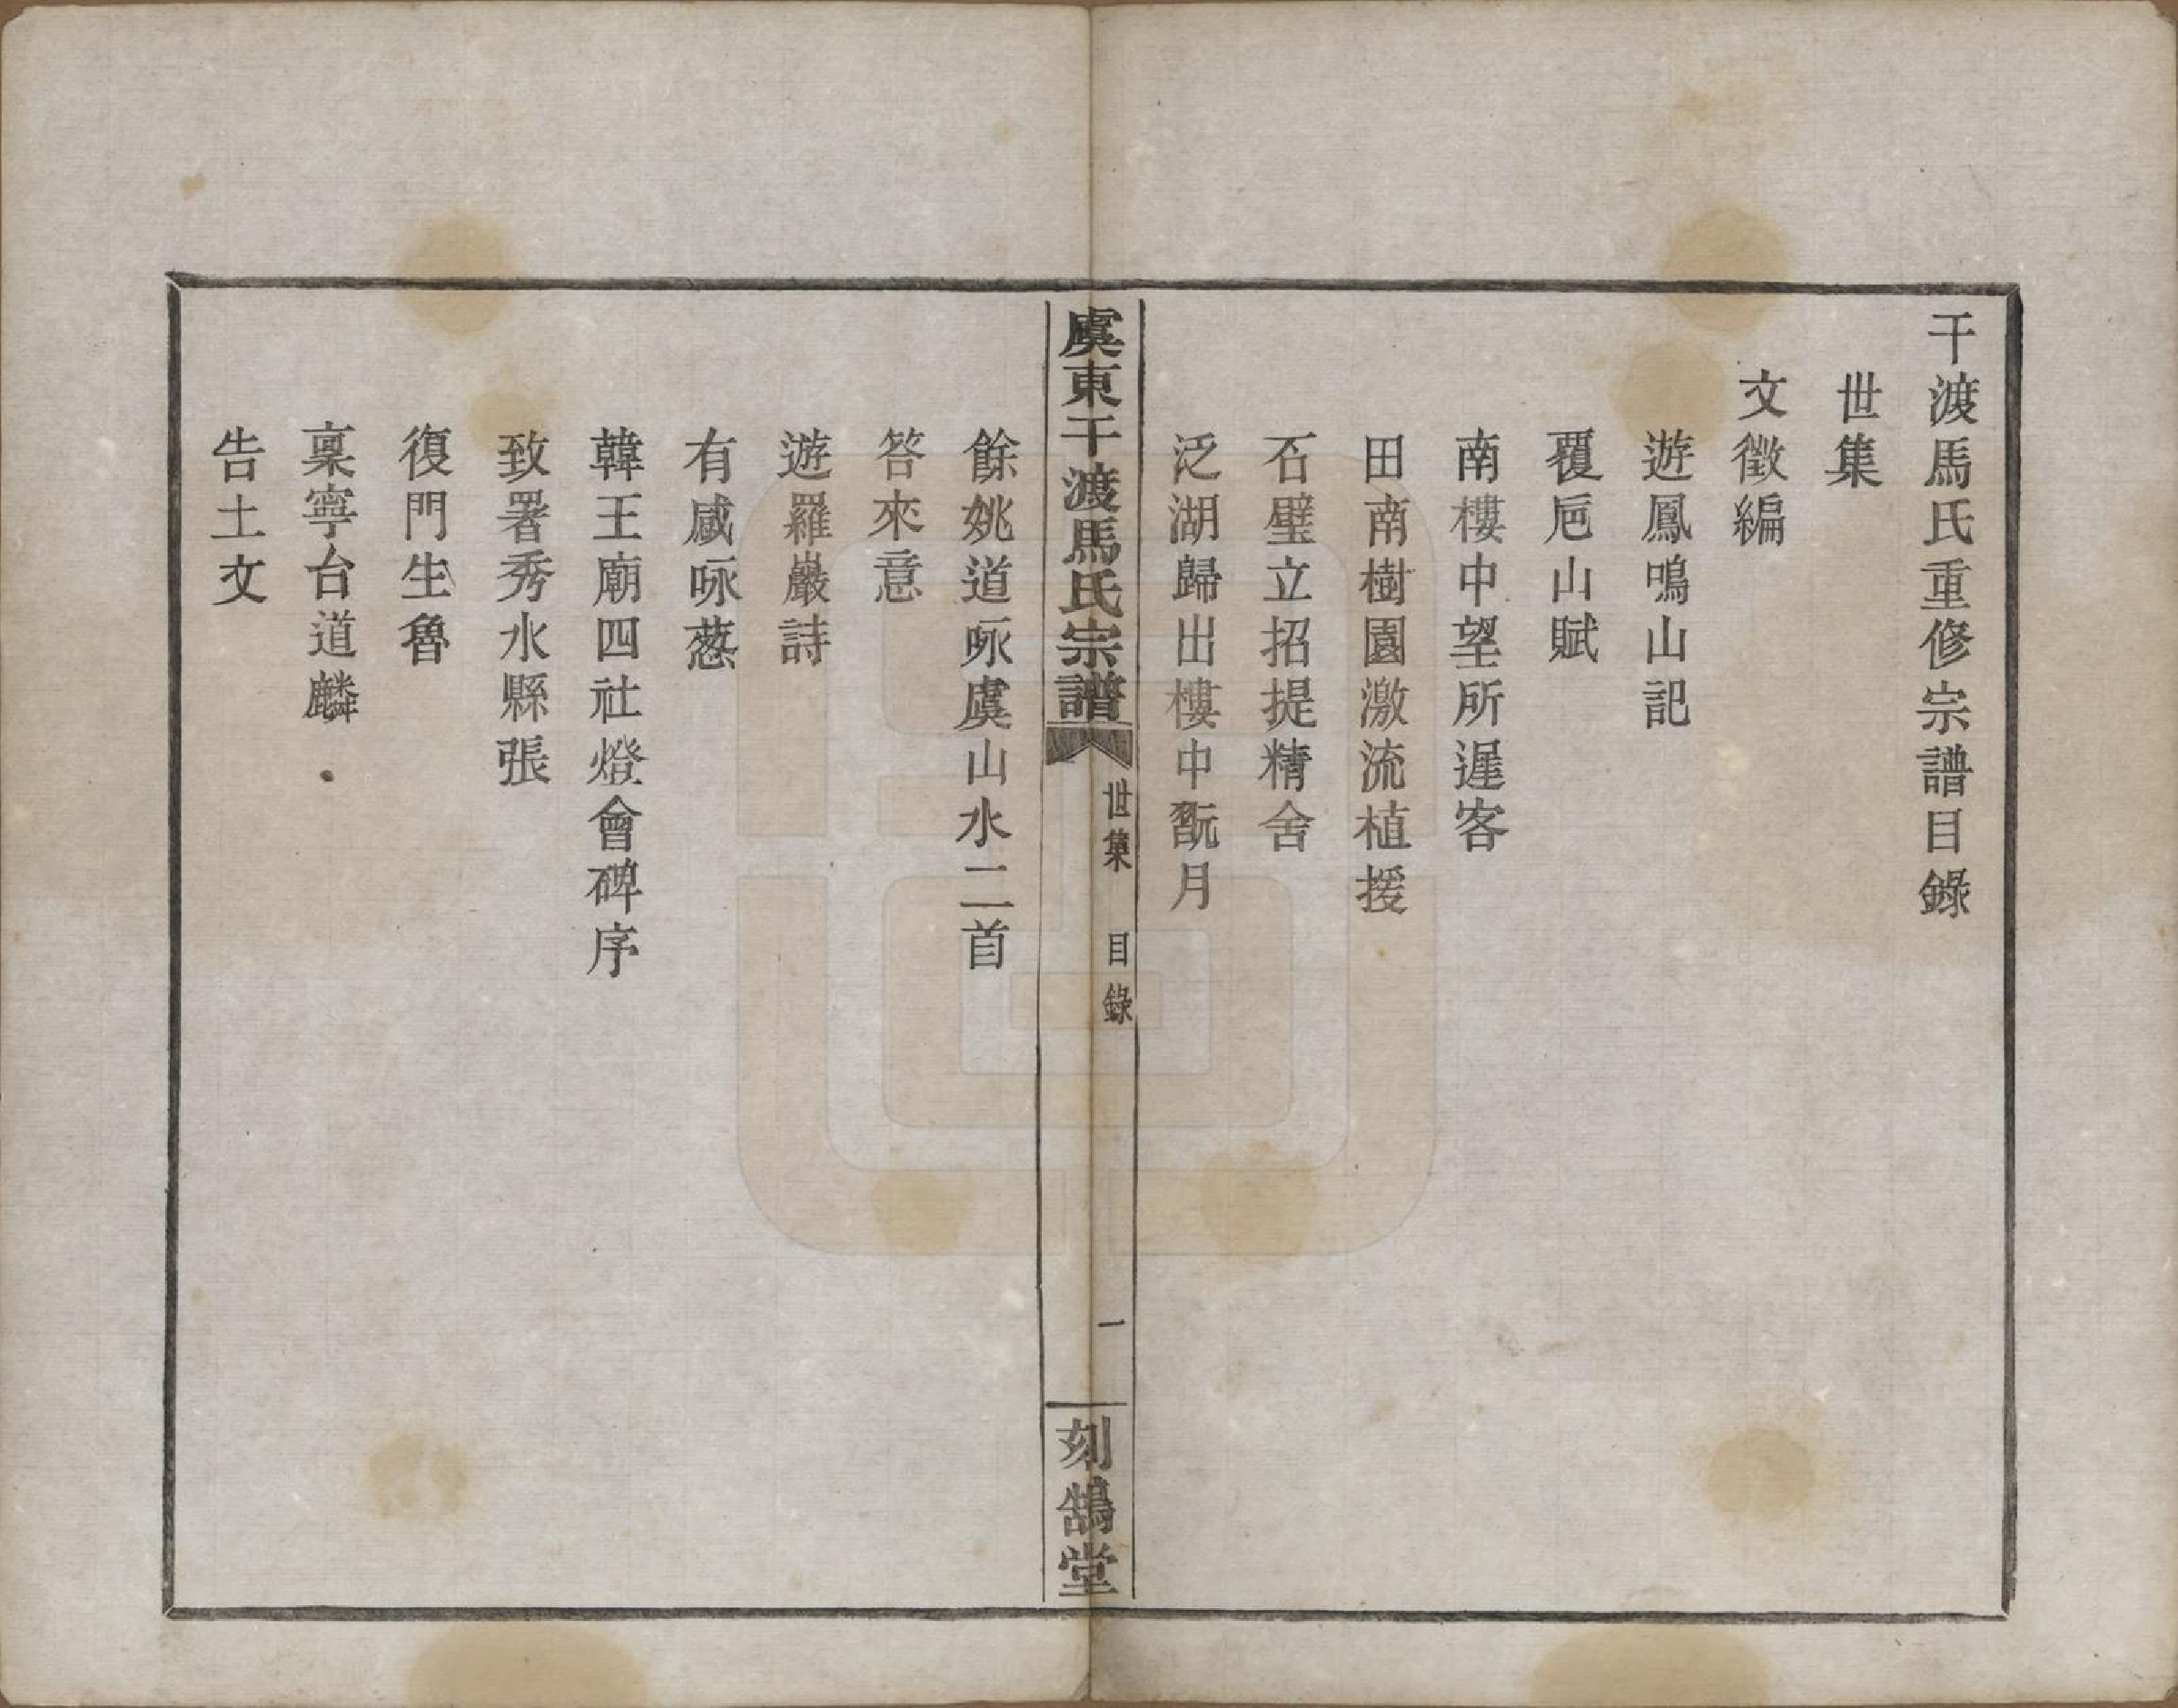 干渡馬氏重修宗譜目錄
世集
文徵編
遊鳳鳴山記
覆卮山賦
南樓中望所遲客
田南樹園激流植援
石壁立招提精舍
泛湖歸出樓中翫月
虞東干渡馬氏宗譜
世集 目錄
一
刻鵠堂
餘姚道咏虞山水二首
答來意
遊羅巖詩
有感咏菸
韓王廟四社燈會碑序
致署秀水縣張
復門生魯
稟寧台道麟
告土文